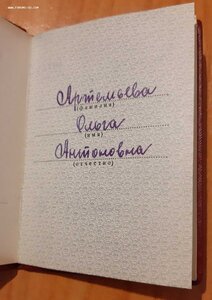 Артемьева
(фамилия)
Ольга
(имя)
Антоновна
(отчество)